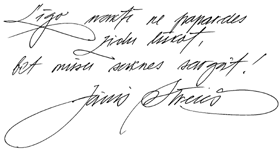 Līgo naktī ne papardes
ziedu
bet mūsu saknes sargāt!
Jānis Streičs